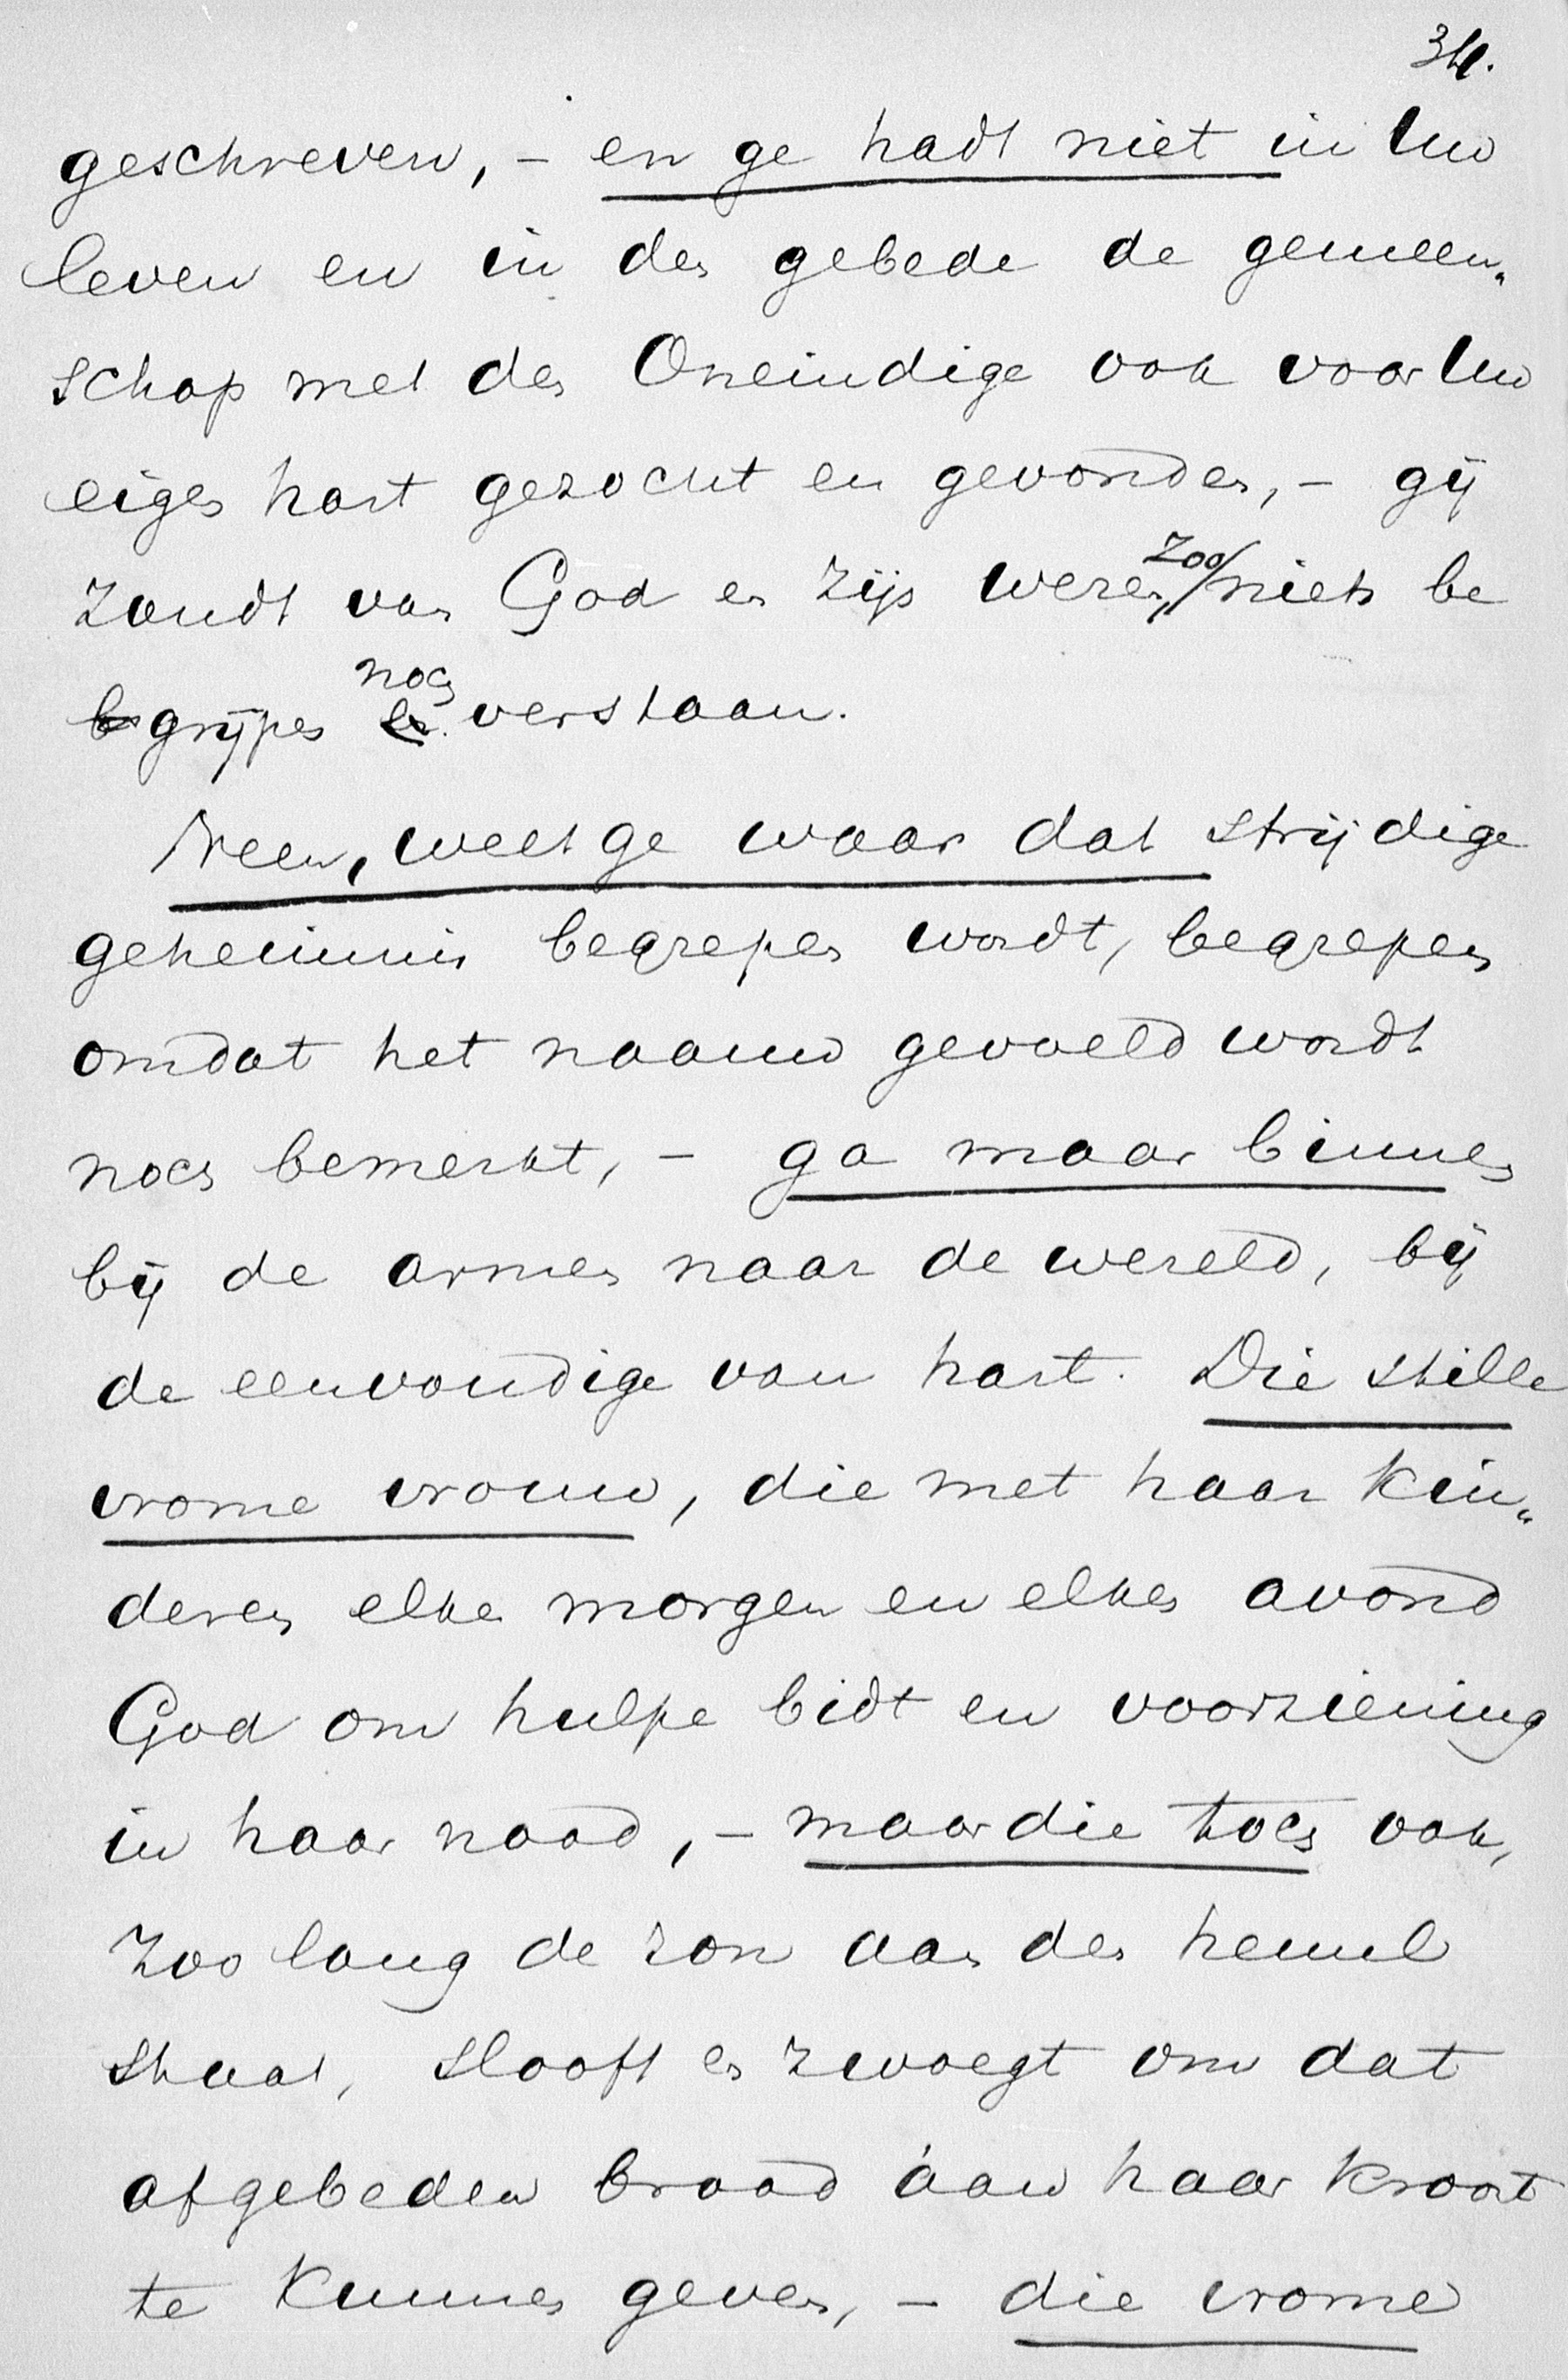 34.
geschreven, – en ge hadt niet in Uw
leven en in den gebede de gemeen„
schap met den Oneindige ook voor Uw
eigen hart gezocht en gevonden, – gij
zoudt van God en zijn wezen, zoo/ niets be
be grijpen noch en verstaan.
Neen, weet ge waar dat strijdige
geheimnis begrepen wordt, begrepen
omdat het naauw gevoeld wordt
noch bemerkt, – ga maar binnen
bij de armen naar de wereld, bij
de eenvoudige van hart. Die stille
vrome vrouw, die met haar kin„
deren elke morgen en elken avond
God om hulpe bidt en voorziening
in haar nood, – maar die toch ook,
zoo lang de zon aan den hemel
staat, slooft en zwoegt om dat
afgebeden brood aan haar kroost
te kunnen geven, – die vrome